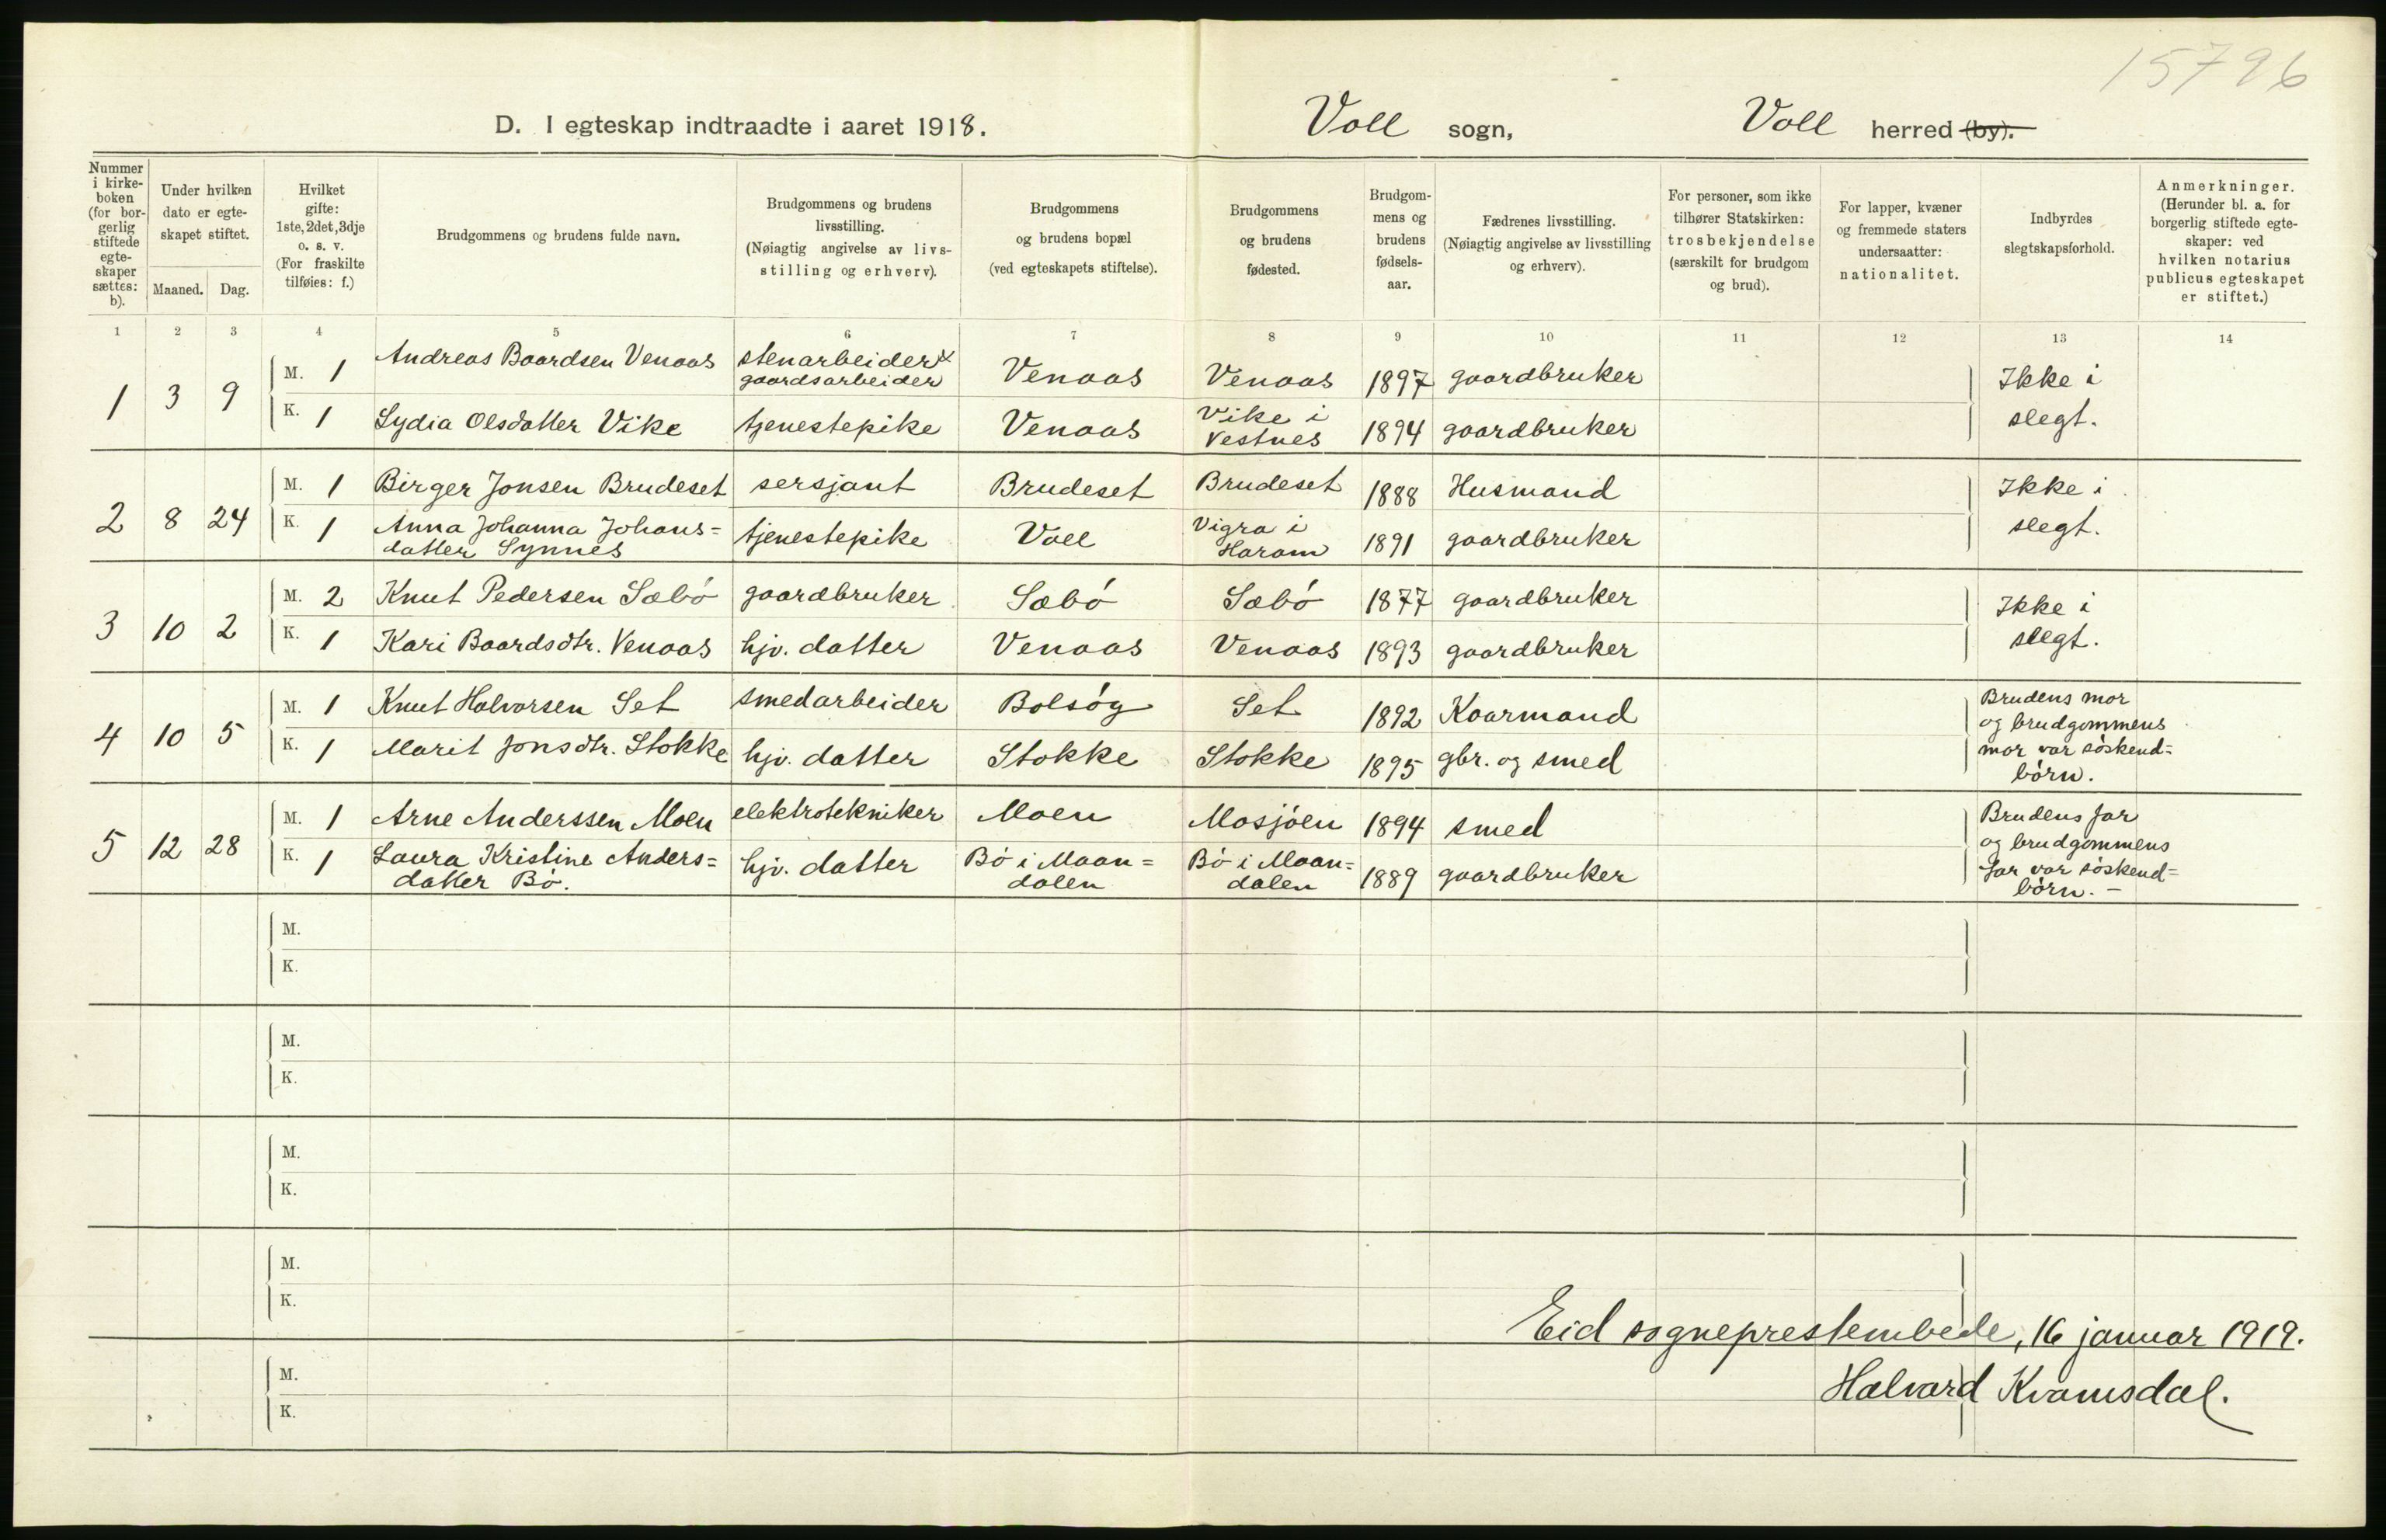 15796
D. I egteskap indtraadte i aaret 1918. Voll sogn, Voll herred (by).
Nummer i kirke-boken (for bor-gerlig stiftede egte-skaper sættes: b). Under hvilken dato er egte-skapet stiftet. Maaned. Dag. Hvilket gifte: 1ste, 2det, 3dje o. s. v. (For fraskilte tilføies: f.) Brudgommens og brudens fulde navn. Brudgommens og brudens livsstilling. (Nøiagtig angivelse av livs-stilling og erhverv). Brudgommens og brudens bopæl (ved egteskapets stiftelse). Brudgommens og brudens fødested. Brudgom-mens og brudens fødsels-aar. Fædrenes livsstilling. (Nøiagtig angivelse av livsstilling og erhverv). For personer, som ikke tilhører Statskirken: trosbekjendelse (særskilt for brudgom og brud). For lapper, kvæner og fremmede staters undersaatter: nationalitet. Indbyrdes slegtskapsforhold. Anmerkninger. (Herunder bl. a. for borgerlig stiftede egte-skaper: ved hvilken notarius publicus egteskapet er stiftet.)
1 2 3 4 5 6 7 8 9 10 11 12 13 14
1 3 9 M. 1 Andreas Baardsen Venaas stenarbeider & gaardsarbeider Venaas Venaas 1897 gaardbruker Ikke i
K. 1 Lydia Olsdatter Vike tjenestepike Venaas Vike i Vestnes 1894 gaardbruker slegt.
2 8 24 M. 1 Birger Jonsen Brudeset sersjant Brudeset Brudeset 1888 Husmand Ikke i
K. 1 Anna Johanna Johans=datter Synnes tjenestepike Voll Vigra i Haram 1891 gaardbruker slegt.
3 10 2 M. 2 Knut Pedersen Sæbö gaardbruker Sæbö Sæbö 1877 gaardbruker Ikke i
K. 1 Kari Baardsdtr. Venaas hjv. datter Venaas Venaas 1893 gaardbruker slegt.
4 10 5 M. 1 Knut Halvorsen Set smedarbeider Bolsöy Set 1892 Kaarmand Brudens mor og brudgommens
K. 1 Marit Jonsdtr. Stokke hjv. datter Stokke Stokke 1895 gbr. og smed mor var söskend=börn.
5 12 28 M. 1 Arne Anderssen Moen elektrotekniker Moen Mosjöen 1894 smed Brudens far og brudgommens
K. 1 Laura Kristine Anders=datter Bö. hjv. datter Bö i Maan=dalen Bö i Maan=dalen 1889 gaardbruker far var söskend=börn. -
M.
K.
M.
K.
M.
K.
M.
K.
Eid sogneprestembede, 16 januar 1919.
M.
Halvard Kvamsdal.
K.